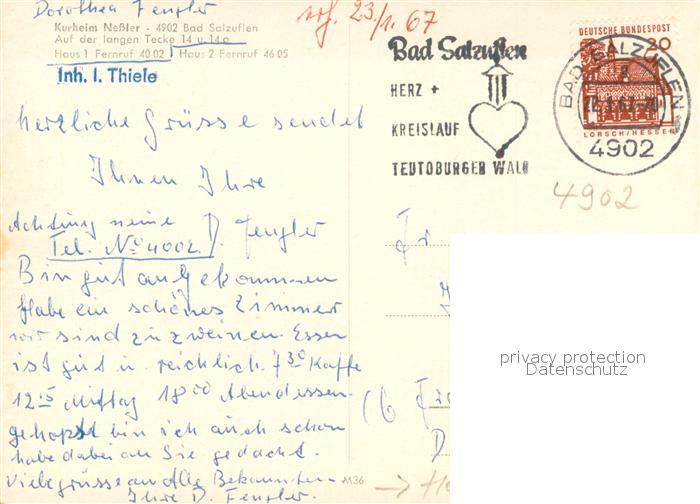 Dorothea Fengler
Kurheim Neßler - 4902 Bad Salzuflen
Auf der langen Tecke 14 u. 14a
Haus 1 Fernruf 40 02 Haus 2 Fernruf 46 05
Inh. I. Thiele
herzliche Grüsse sendet
Ihnen Ihre
D. Fengler
Achtung neine
Tel. No 4002.
Bin gut angekommen
Habe ein schönes Zimmer
wir sind zu zweinen Essen
ist gut u. reichlich. 7 30 Kaffe
12 15 Mittag 18 00 Abendessen.
gehopst bin ich auch schon
habe dabei an Sie gedacht.
Viele grüsse an Alle Bekannten
Ihre D. Fengler.
23/1. 67
Bad Salzuflen
HERZ +
KREISLAUF
TEUTOBURGER WALD
DEUTSCHE BUNDESPOST
20
LORSCH/HESSEN
BAD SALZUFLEN
4902
4902
Fr
privacy protection
Datenschutz
M36